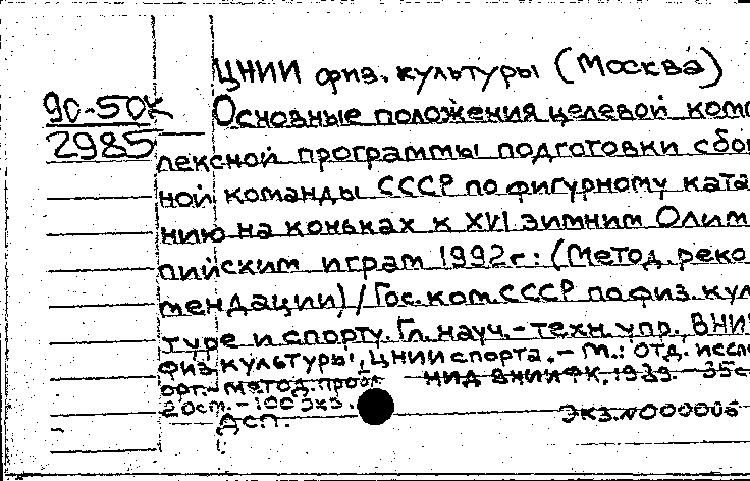 ЦНИИ физ. культуры (Москва)
90-50К
2985
Основные положения целевой комп
лексной программы подготовки сбор
ной команды СССР по фигурному ката
нию на коньках к XVI зимним Олим
пийским играм 1992г.: (Метод. реко
мендации) / Гос. ком. СССР по физ. куль
туре и спорту. Гл. науч.-техн. упр., ВНИИ
физ. культуры, ЦНИИ спорта. - М.: Отд. иссл
орг.-метод. пробл НИД ВНИИФК, 1989. - 35с
20см. - 100 экз.
ДСП.
Экз. N000006